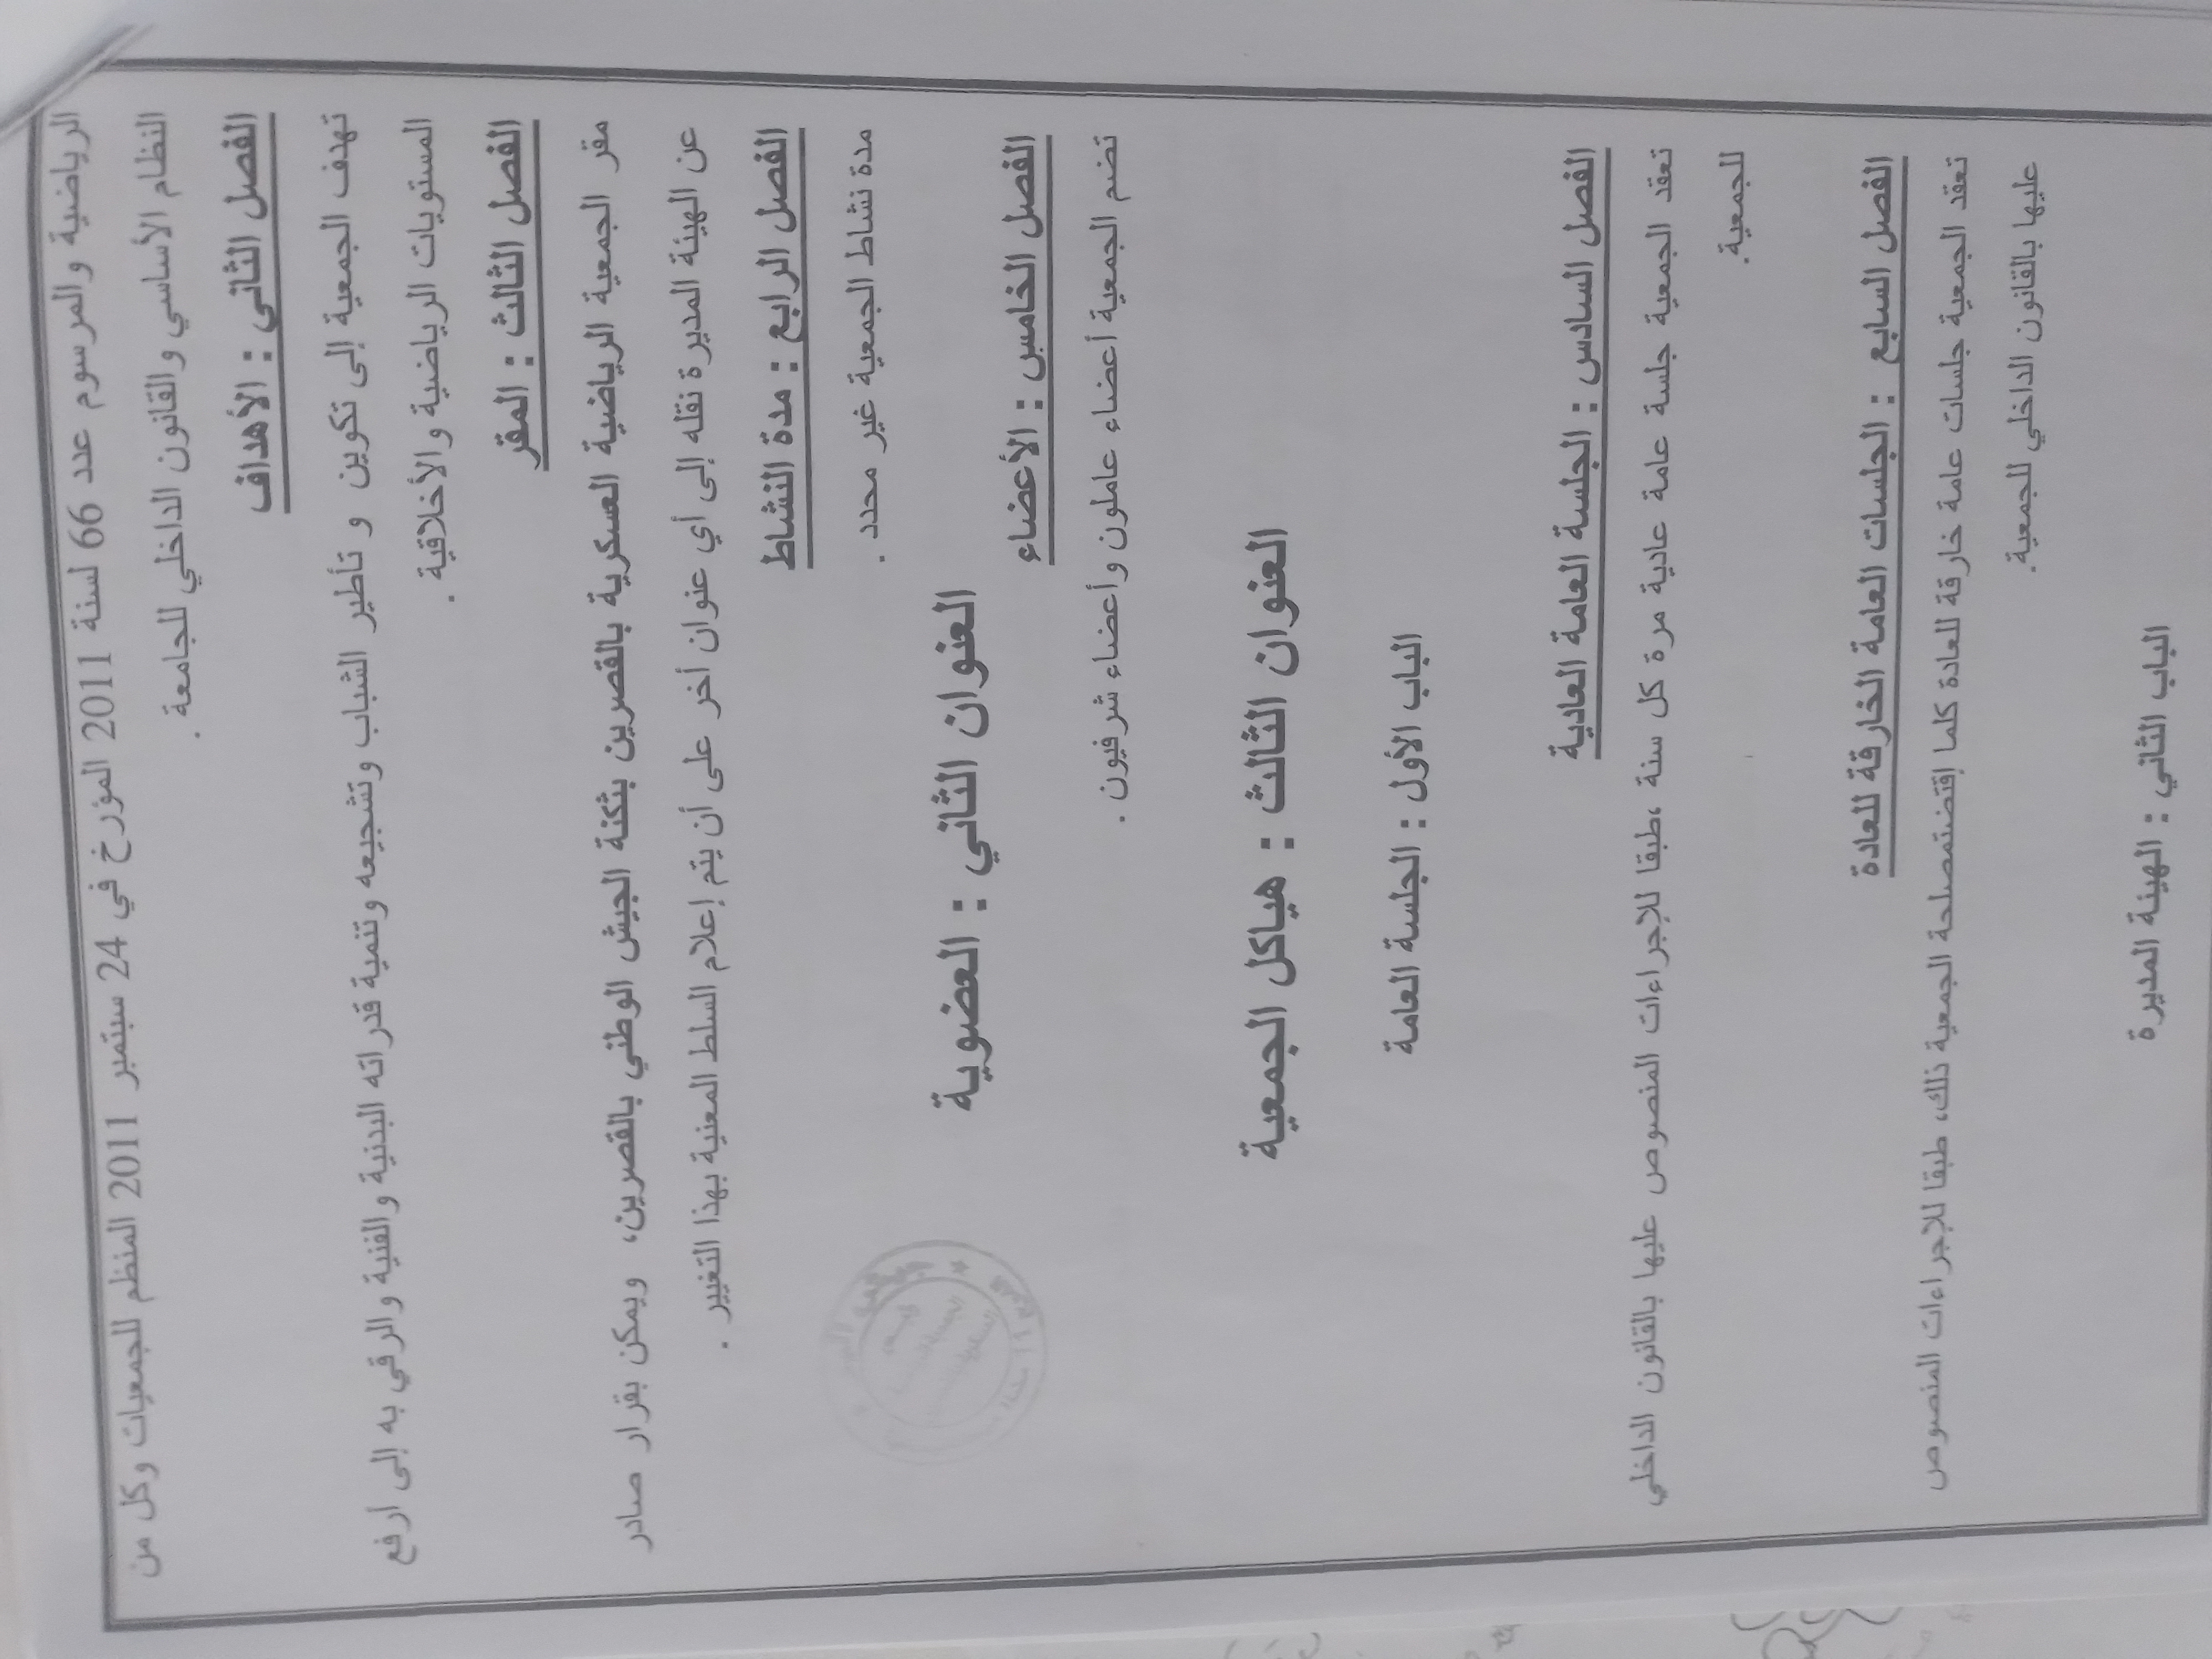 الرياضية والمرسوم عدد 66 لسنة 2011 المؤرخ في 24 سبتمبر 2011 المنظم للجمعيات وكل من
النظام الأساسي والقانون الداخلي للجامعة .
الفصل الثاني : الأهداف
تهدف الجمعية إلى تكوين و تأطير الشباب وتشجيعه وتنمية قدراته البدنية والفنية والرقي به إلى ارفع
المستويات الرياضية والأخلاقية .
الفصل الثالث : المقر
مقر الجمعية الرياضية العسكرية بالقصرين بثكنة الجيش الوطني بالقصرين، ويمكن بقرار صادر
عن الهيئة المديرة نقله إلى أي عنوان أخر على أن يتم إعلام السلط المعنية بهذا التغيير .
الفصل الرابع : مدة النشاط
مدة نشاط الجمعية غير محدد .
العنوان الثاني : العضوية
الفصل الخامس : الأعضاء
تضم الجمعية أعضاء عاملون وأعضاء شرفيون .
العنوان الثالث : هياكل الجمعية
الباب الأول : الجلسة العامة
الفصل السادس : الجلسة العامة العادية
تعقد الجمعية جلسة عامة عادية مرة كل سنة ،طبقا للإجراءات المنصوص عليها بالقانون الداخلي
للجمعية.
الفصل السابع : الجلسات العامة الخارقة للعادة
تعقد الجمعية جلسات عامة خارقة للعادة كلما إقتضتمصلحة الجمعية ذلك، طبقا للإجراءات المنصوص
عليها بالقانون الداخلي للجمعية.
الباب الثاني : الهيئة المديرة